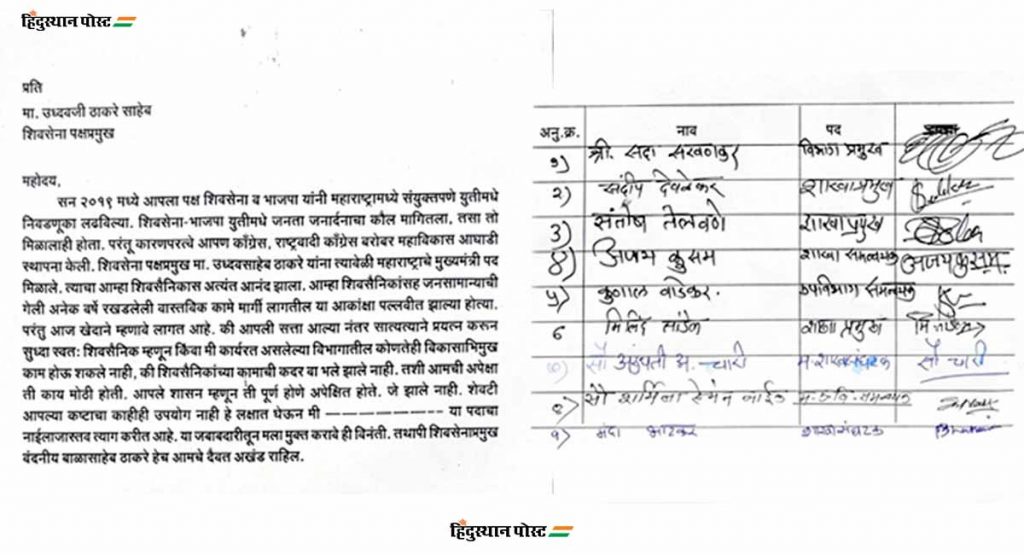 हिंदुस्थान पोस्ट
प्रति
मा. उध्दवजी ठाकरे साहेब
शिवसेना पक्षप्रमुख
महोदय,
सन २०१९ मध्ये आपला पक्ष शिवसेना व भाजपा यांनी महाराष्ट्रामध्ये संयुक्तपणे युतीमधे
निवडणूका लढविल्या. शिवसेना-भाजपा युतीमधे जनता जनार्दनाचा कौल मागितला, तसा तो
मिळालाही होता. परंतू कारणपरत्वे आपण काँग्रेस, राष्ट्रवादी काँग्रेस बरोबर महाविकास आघाडी
स्थापना केली. शिवसेना पक्षप्रमुख मा. उध्दवसाहेब ठाकरे यांना त्यावेळी महाराष्ट्राचे मुख्यमंत्री पद
मिळाले. त्याचा आम्हा शिवसैनिकास अत्यंत आनंद झाला. आम्हा शिवसैनिकांसह जनसामान्याची
गेली अनेक वर्षे रखडलेली वास्तविक कामे मार्गी लागतील या आकांक्षा पल्लवीत झाल्या होत्या.
परंतु आज खेदाने म्हणावे लागत आहे. की आपली सत्ता आल्या नंतर सात्यत्याने प्रयत्न करून
सुध्दा स्वतः शिवसैनिक म्हणून किंवा मी कार्यरत असलेल्या विभागातील कोणतेही विकासाभिमुख
काम होऊ शकले नाही, की शिवसैनिकांच्या कामाची कदर वा भले झाले नाही. तशी आमची अपेक्षा
ती काय मोठी होती. आपले शासन म्हणून ती पूर्ण होणे अपेक्षित होते. जे झाले नाही. शेवटी
आपल्या कष्टाचा काहीही उपयोग नाही हे लक्षात घेऊन मी —————— या पदाचा
नाईलाजास्तव त्याग करीत आहे. या जबाबदारीतून मला मुक्त करावे ही विनंती. तथापी शिवसेनाप्रमुख
वंदनीय बाळासाहेब ठाकरे हेच आमचे दैवत अखंड राहिल.
अनु.क्र. नाव पद
१) श्री. सदा सरवणकर विभाग प्रमुख
२) संदीप देवळेकर शाखाप्रमुख
३) संतोष तेलवणे शाखा प्रमुख
४) अजय कुसम शाखा समन्वयक अजय कुसम
५) कुणाल वाडेकर. उपविभाग समन्वयक
६ मिलिंद तांडेल शाखा प्रमुख
सौ अ. चारी सौ चारी
सौ शर्मिला हेमंत नाईक
९) मंदा भाटकर शाखासंघटक
हिंदुस्थान पोस्ट